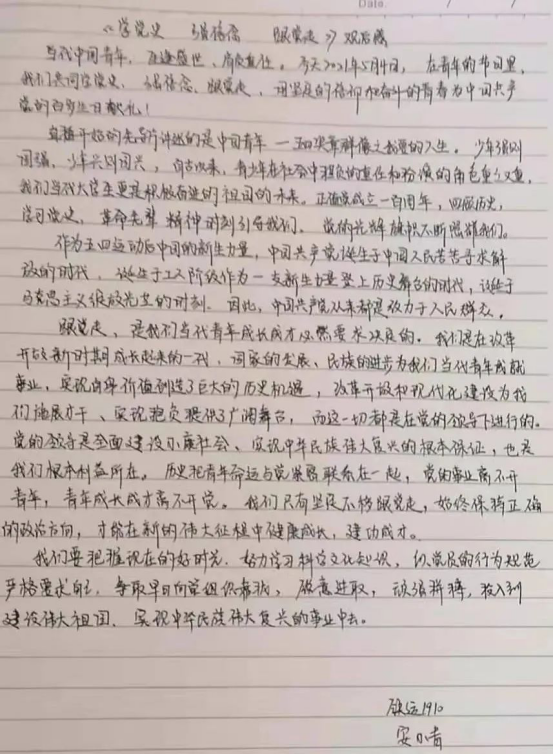 Date.
《学党史 强信念 跟党走》观后感
当代中国青年,在逢盛世、肩负重任。今天2021年5月4日,在青年的节日里,
我们共同学党史、强信念、跟党走,用坚定的信仰和奋斗的青春为中国共产
党的百岁生日献礼!
开始的先导片讲述的是中国青年一 群像之我爱的人生。少年强则
国强,少年兴则国兴,自古以来,青少年在社会中担负的责任和扮演的角色重之又重,
我们当代大学生更是积极奋进的祖国的未来。正值党成立一百周年,回顾历史,
学习党史,革命先辈精神时刻引导我们,党的光辉旗帜不断照耀我们。
作为五四运动后中国的新生力量,中国共产党诞生于中国人民苦苦寻求解
放的时代,诞生于工人阶级作为一支新生力量登上历史舞台的时代,诞生于
马克思主义绽放光芒的时刻。因此,中国共产党从来都是致力于人民群众。
跟党走,是我们当代青年成长成才必然要求决定的。我们是在改革
开放新时期成长起来的一代,国家的发展、民族的进步为我们当代青年成就
事业,实现自身价值创造了巨大的历史机遇,改革开放和现代化建设为我
们施展才干、实现抱负提供了广阔舞台,而这一切都是在党的领导下进行的。
党的领导是全面建设小康社会、实现中华民族伟大复兴的根本保证,也是
我们根本利益所在。历史把青年命运与党紧密联系在一起,党的事业离不开
青年,青年成长成才离不开党。我们只有坚定不移跟党走,始终保持正确
的政治方向,才能在新的伟大征程中健康成长,建功成才。
我们要把握现在的好时光,努力学习科学文化知识,以党员的行为规范
严格要求自己,争取早日向党组织靠拢,锐意进取,顽强拼搏,投入到
建设伟大祖国,实现中华民族伟大复兴的事业中去。
铁运1910
安小青